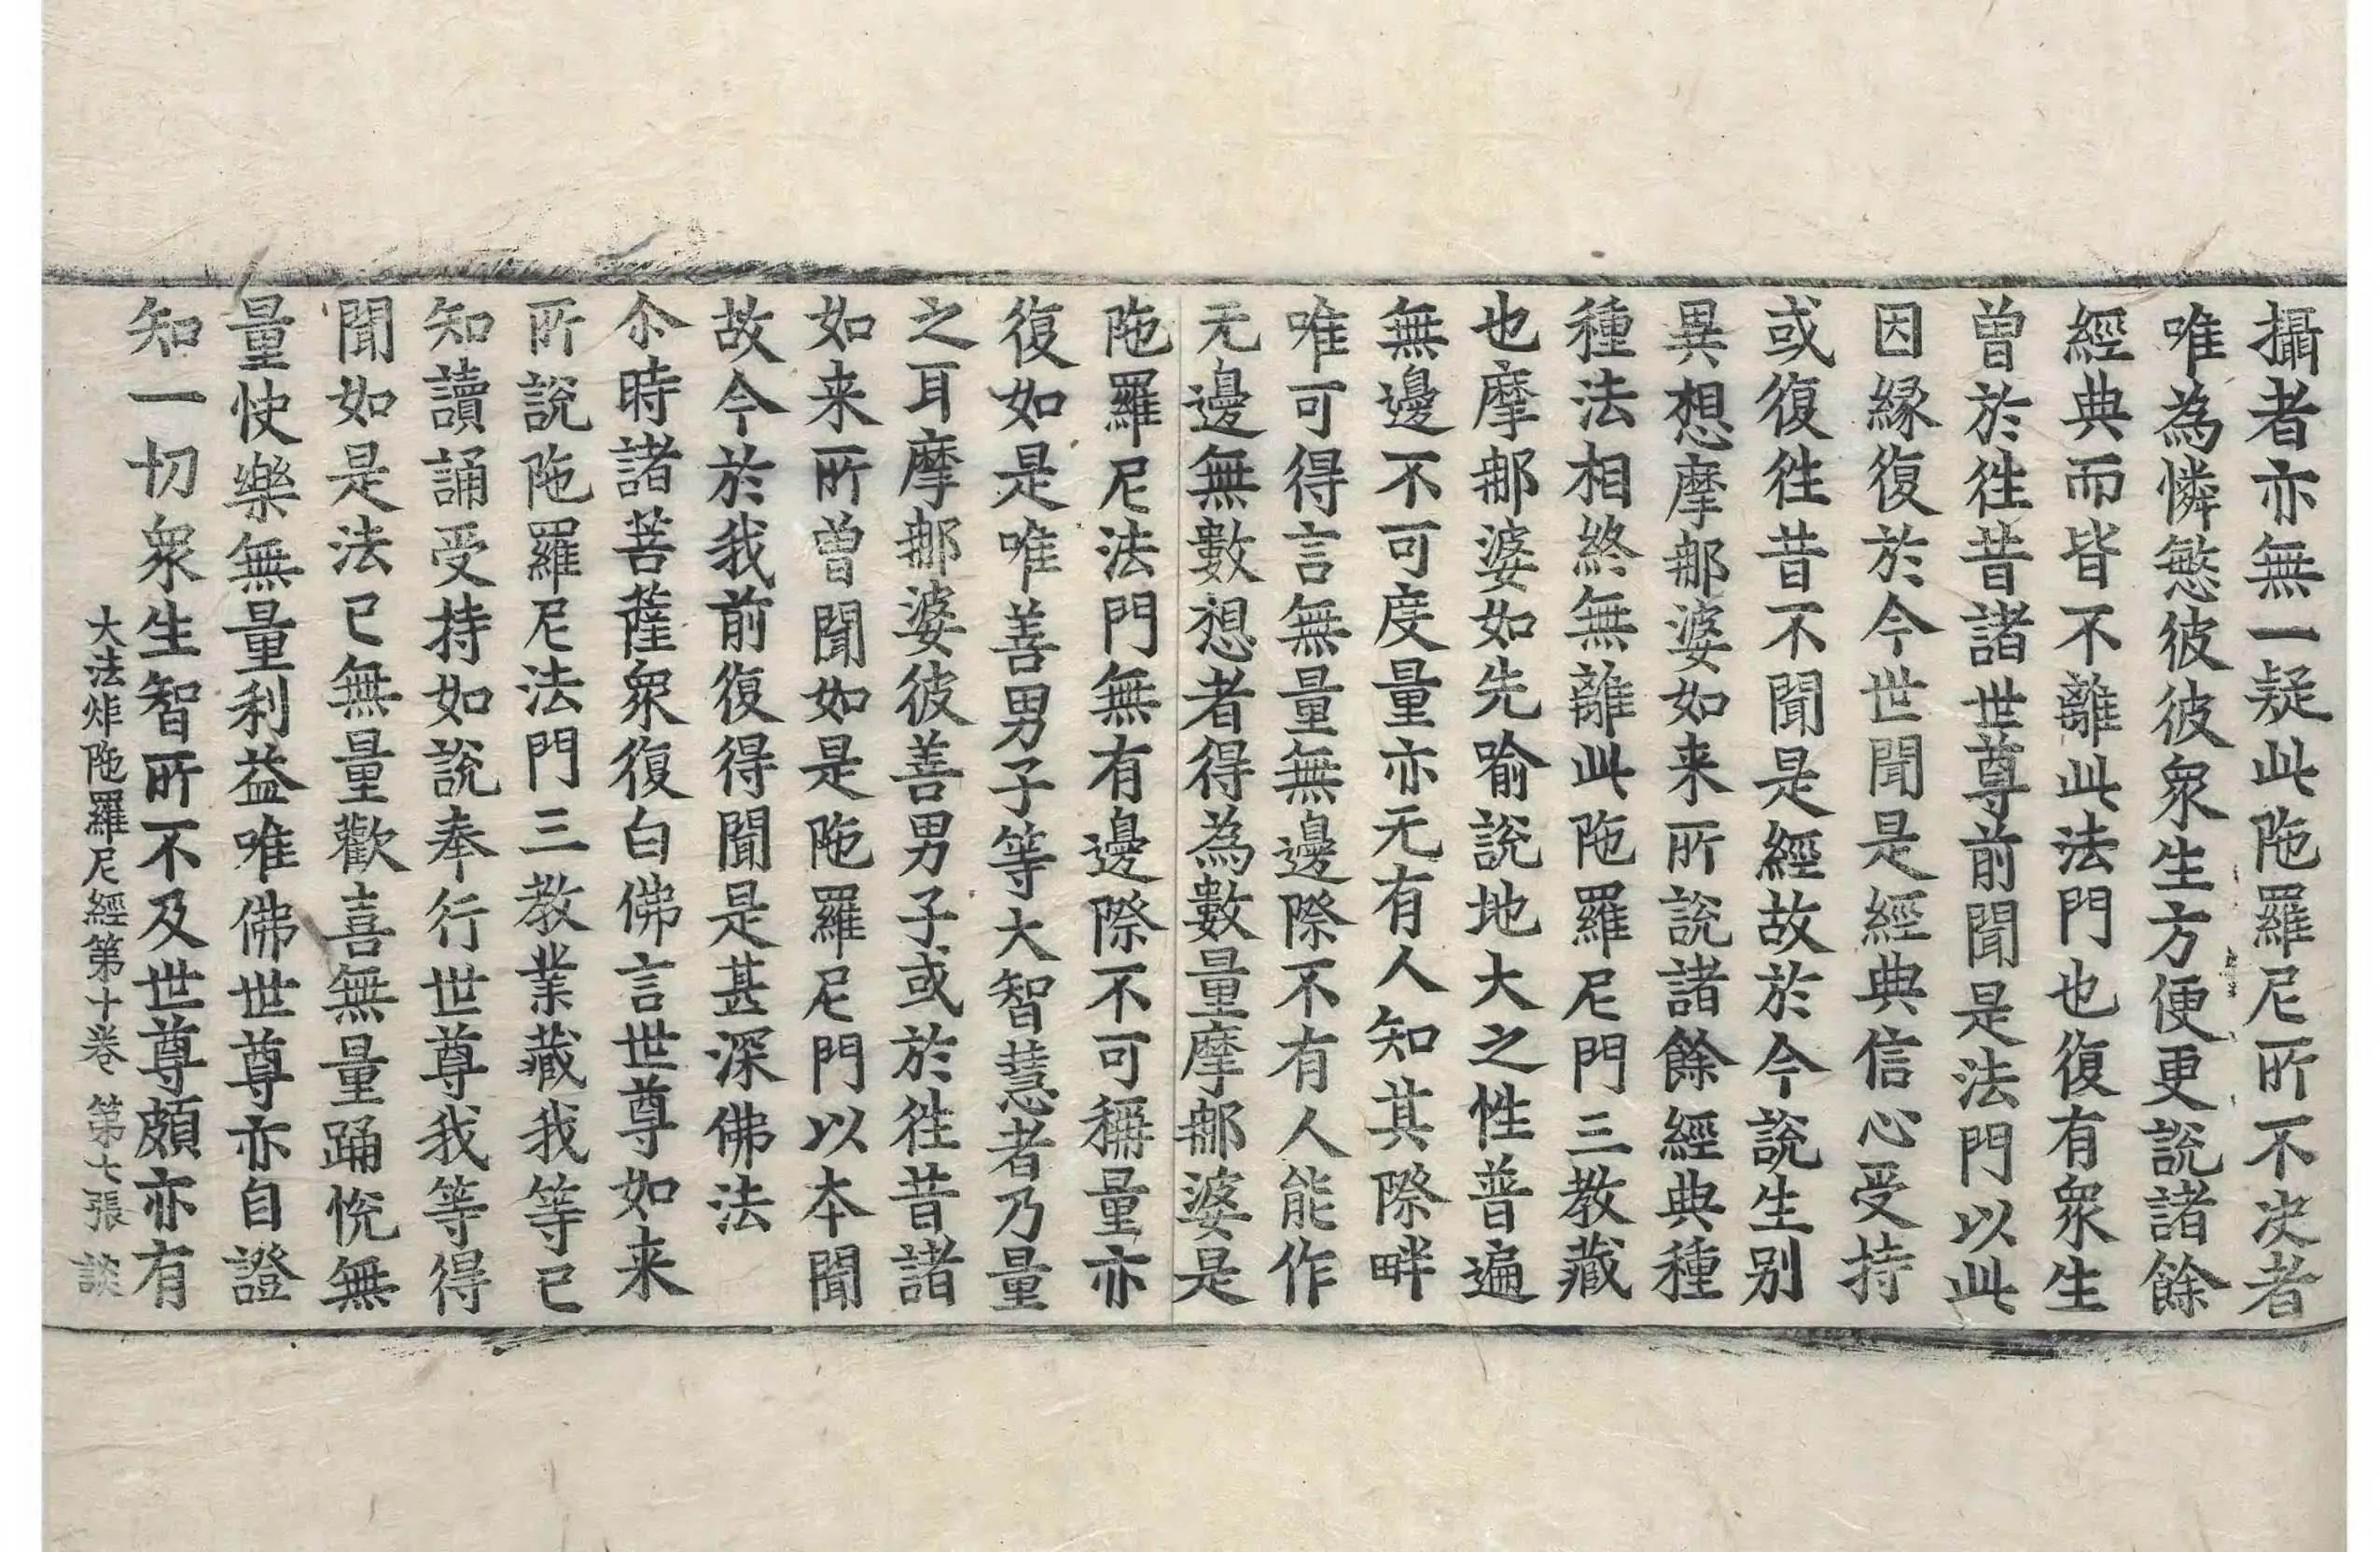 攝者亦無一疑此陁羅尼所不决者
唯為憐愍彼彼衆生方便更說諸餘
經典而皆不離此法門也復有衆生
曾於徃昔諸世尊前聞是法門以此
因緣復於今世聞是經典信心受持
或復徃昔不聞是經故於今說生别
異想摩那婆如来所說諸餘經典種
種法相終無離此陁羅尼門三教藏
也摩那婆如先喻說地大之性普遍
無邊不可度量亦无有人知其際畔
唯可得言無量無邊際不有人能作
无邊無數想者得為數量摩那婆是
陁羅尼法門無有邊際不可稱量亦
復如是唯善男子等大智慧者乃量
之耳摩那婆彼善男子或於徃昔諸
如来所曾聞如是陁羅尼門以本聞
故今於我前復得聞是甚深佛法
尒時諸菩薩衆復白佛言世尊如来
所說陁羅尼法門三教業藏我等已
知讀誦受持如說奉行世尊我等得
聞如是法已無量歡喜無量踊恱無
量快樂無量利益唯佛世尊亦自證
知一切衆生智所不及世尊頗亦有
大法炬陁羅尼經第十卷 第七張 談